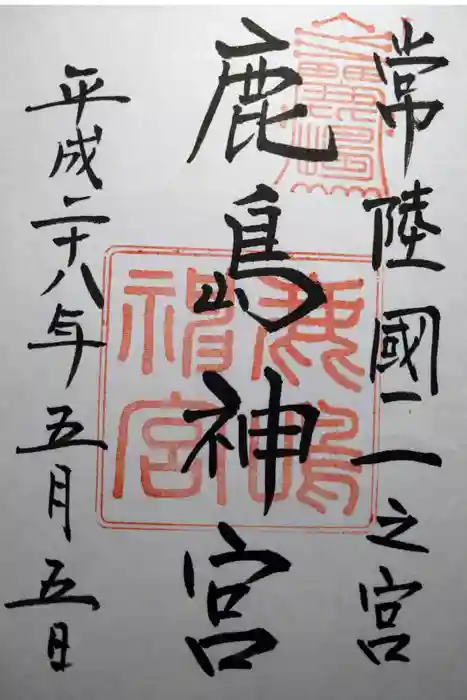 常陸國一之宮
鹿島神宮
平成二十八年五月五日
鹿嶋
神宮